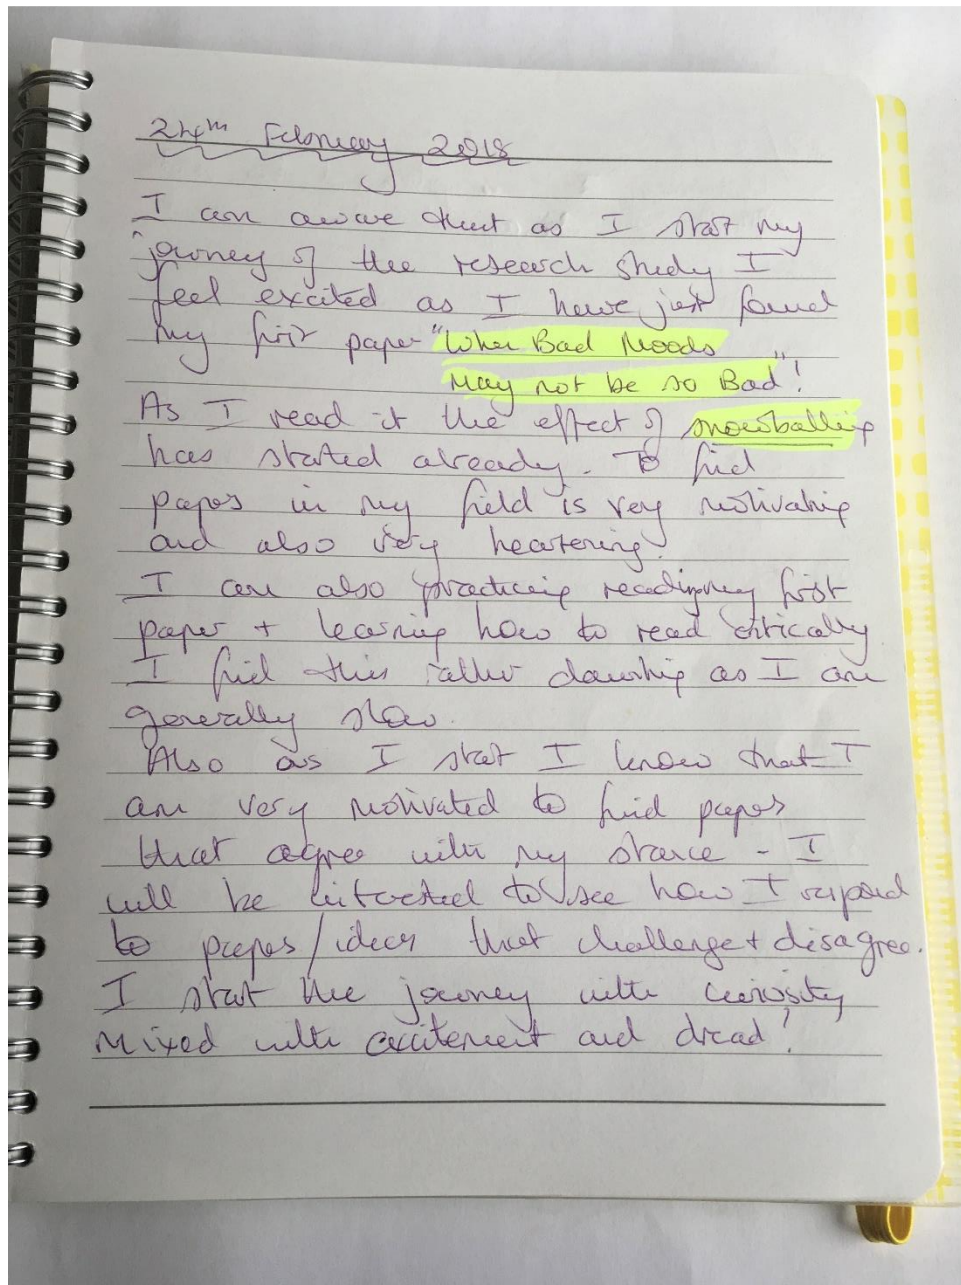 24th February 2018
I am aware that as I start my
journey of the research study I
feel excited as I have just found
my first paper "When Bad Moods
May not be so Bad"!
As I read it the effect of snowballing
has started already. To find
papers in my field is very motivating
and also very heartening.
I am also practicing reading my first
paper + learning how to read critically
I find this rather daunting as I am
generally slow.
Also as I start I know that I
am very motivated to find papers
that agree with my stance - I
will be interested to see how I respond
to papers/ideas that challenge + disagree.
I start the journey with curiosity
mixed with excitement and dread!